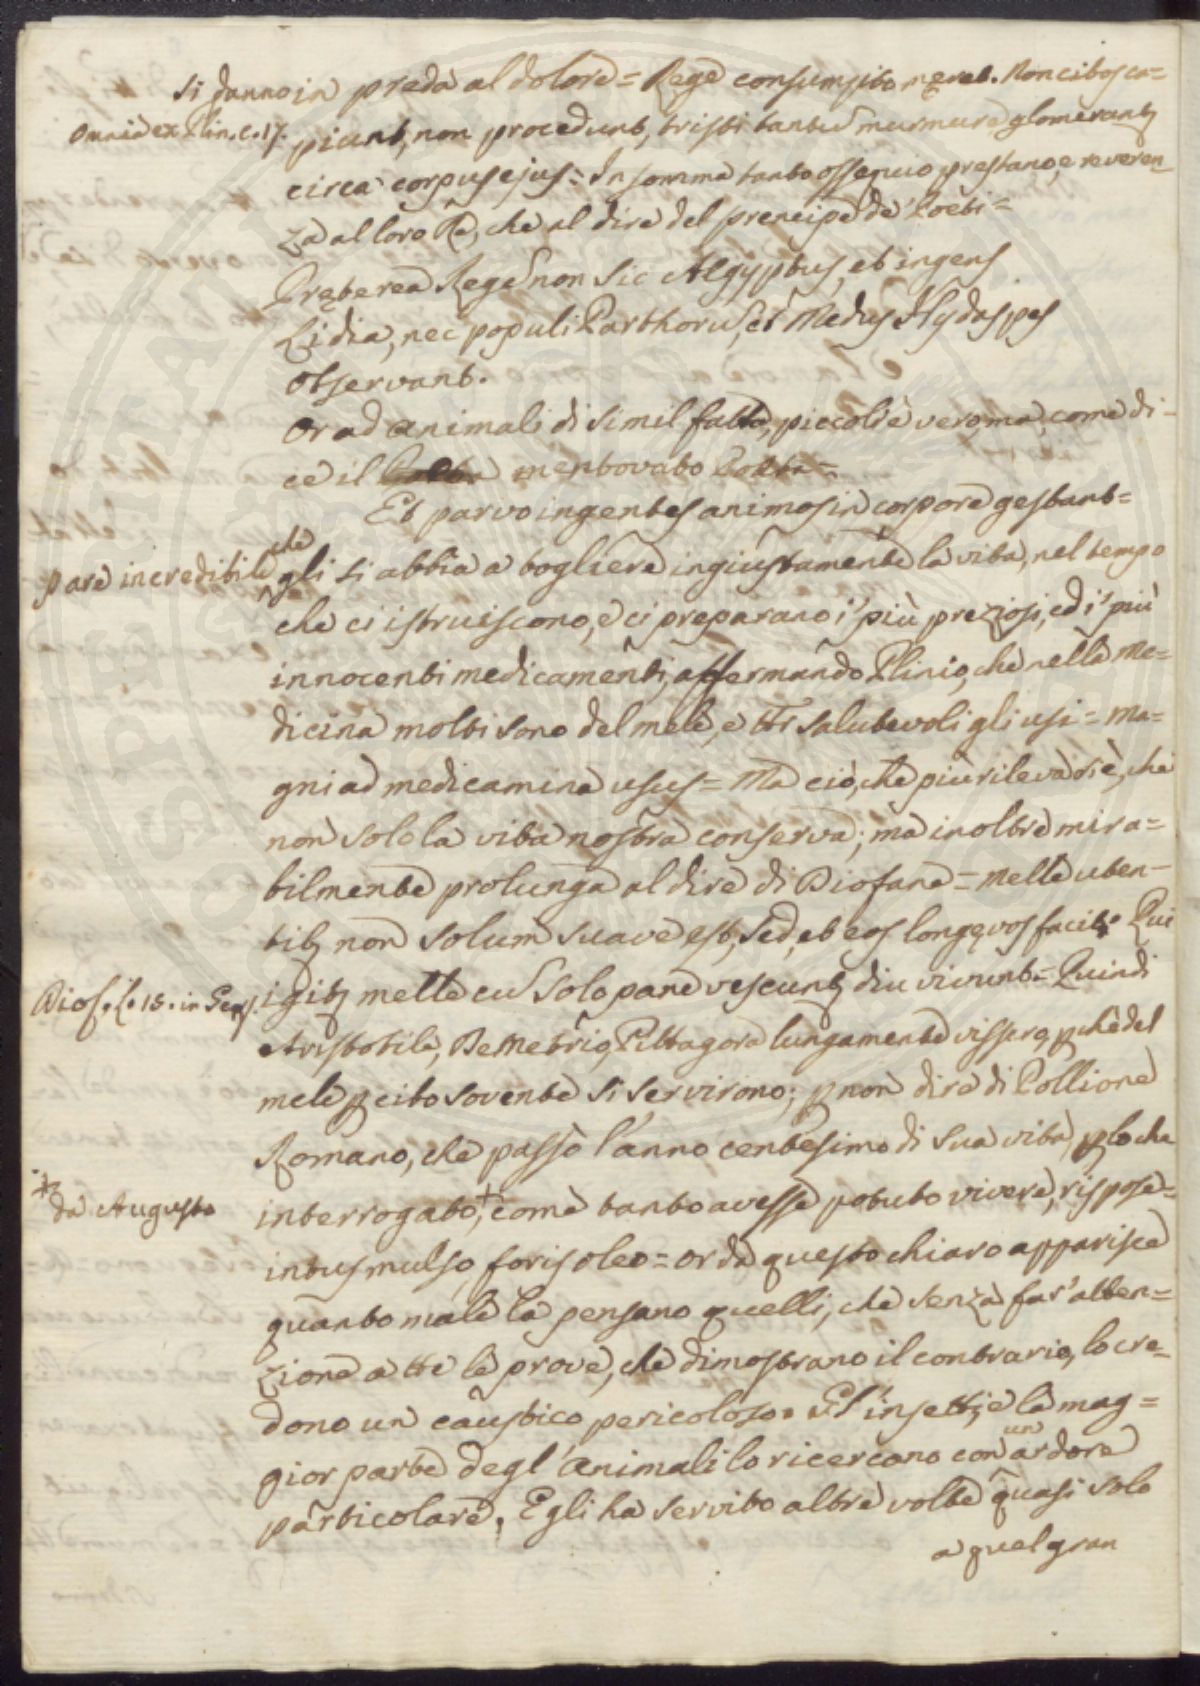 si danno in preda al dolore = Rege consumpto męret. Non cibos ca=
Omnia ex Plin. c. 17.
piunt, non procedunt, tristi tantũ murmure glomerantʒ
circa corpus ejus: In somma tanto ossequio prestano, e reveren=
za al loro Rè, che al dire del prencipe de' Poeti =
Pręterea Regẽ non sic AEgyptus, et ingens
Lidia, nec populi Parthorũ, et Medus Hydaspes
observant.
Or ad animali di simil fatta, piccoli è vero, ma, come di-
ce il mentovato Poeta =
Et parvo ingentes animos in corpore gestant =
pare incredibile
che
gli si abbia a togliere ingiustamente la vita, nel tempo
che ci istruiscono, e ci preparano i' più preziosi, ed i' più
innocenti medicamenti, affermando Plinio, che nella me=
dicina molti sono del mele, e tti salutevoli gli usi = ma=
gni ad medicamina usus = Ma ciò, che più rileva si è, che
non solo la vita nostra conserva; ma inoltre mira=
bilmente prolunga al dire di Diofane = Melle uten-
tibʒ non solum suave est, sed, et eos longęvos facit. Qui
Diof. L. 15. in Geo.
igitʒ melle cũ solo pane vescuntʒ diu vivunt = Quindi
Aristotile, Demetrio, Pittagora lungamente vissero, pchè del
mele p cibo sovente si servirono; p non dire di Pollione
Romano, che passò l'anno centesimo di sua vita, plo che
+
da Augusto
interrogato,+ come tanto avesse potuto vivere, rispose =
intus mulso, foris oleo = or da questo chiaro apparisce
quanto male la pensano quelli, che senza far' atten=
zione a tte le prove, che dimostrano il contrario, lo cre=
dono un caustico pericoloso. Gl'insetti, e la mag=
un
gior parte degl'animali lo ricercono con ardore
particolare, Egli ha servito altre volte quasi solo
a quel gran